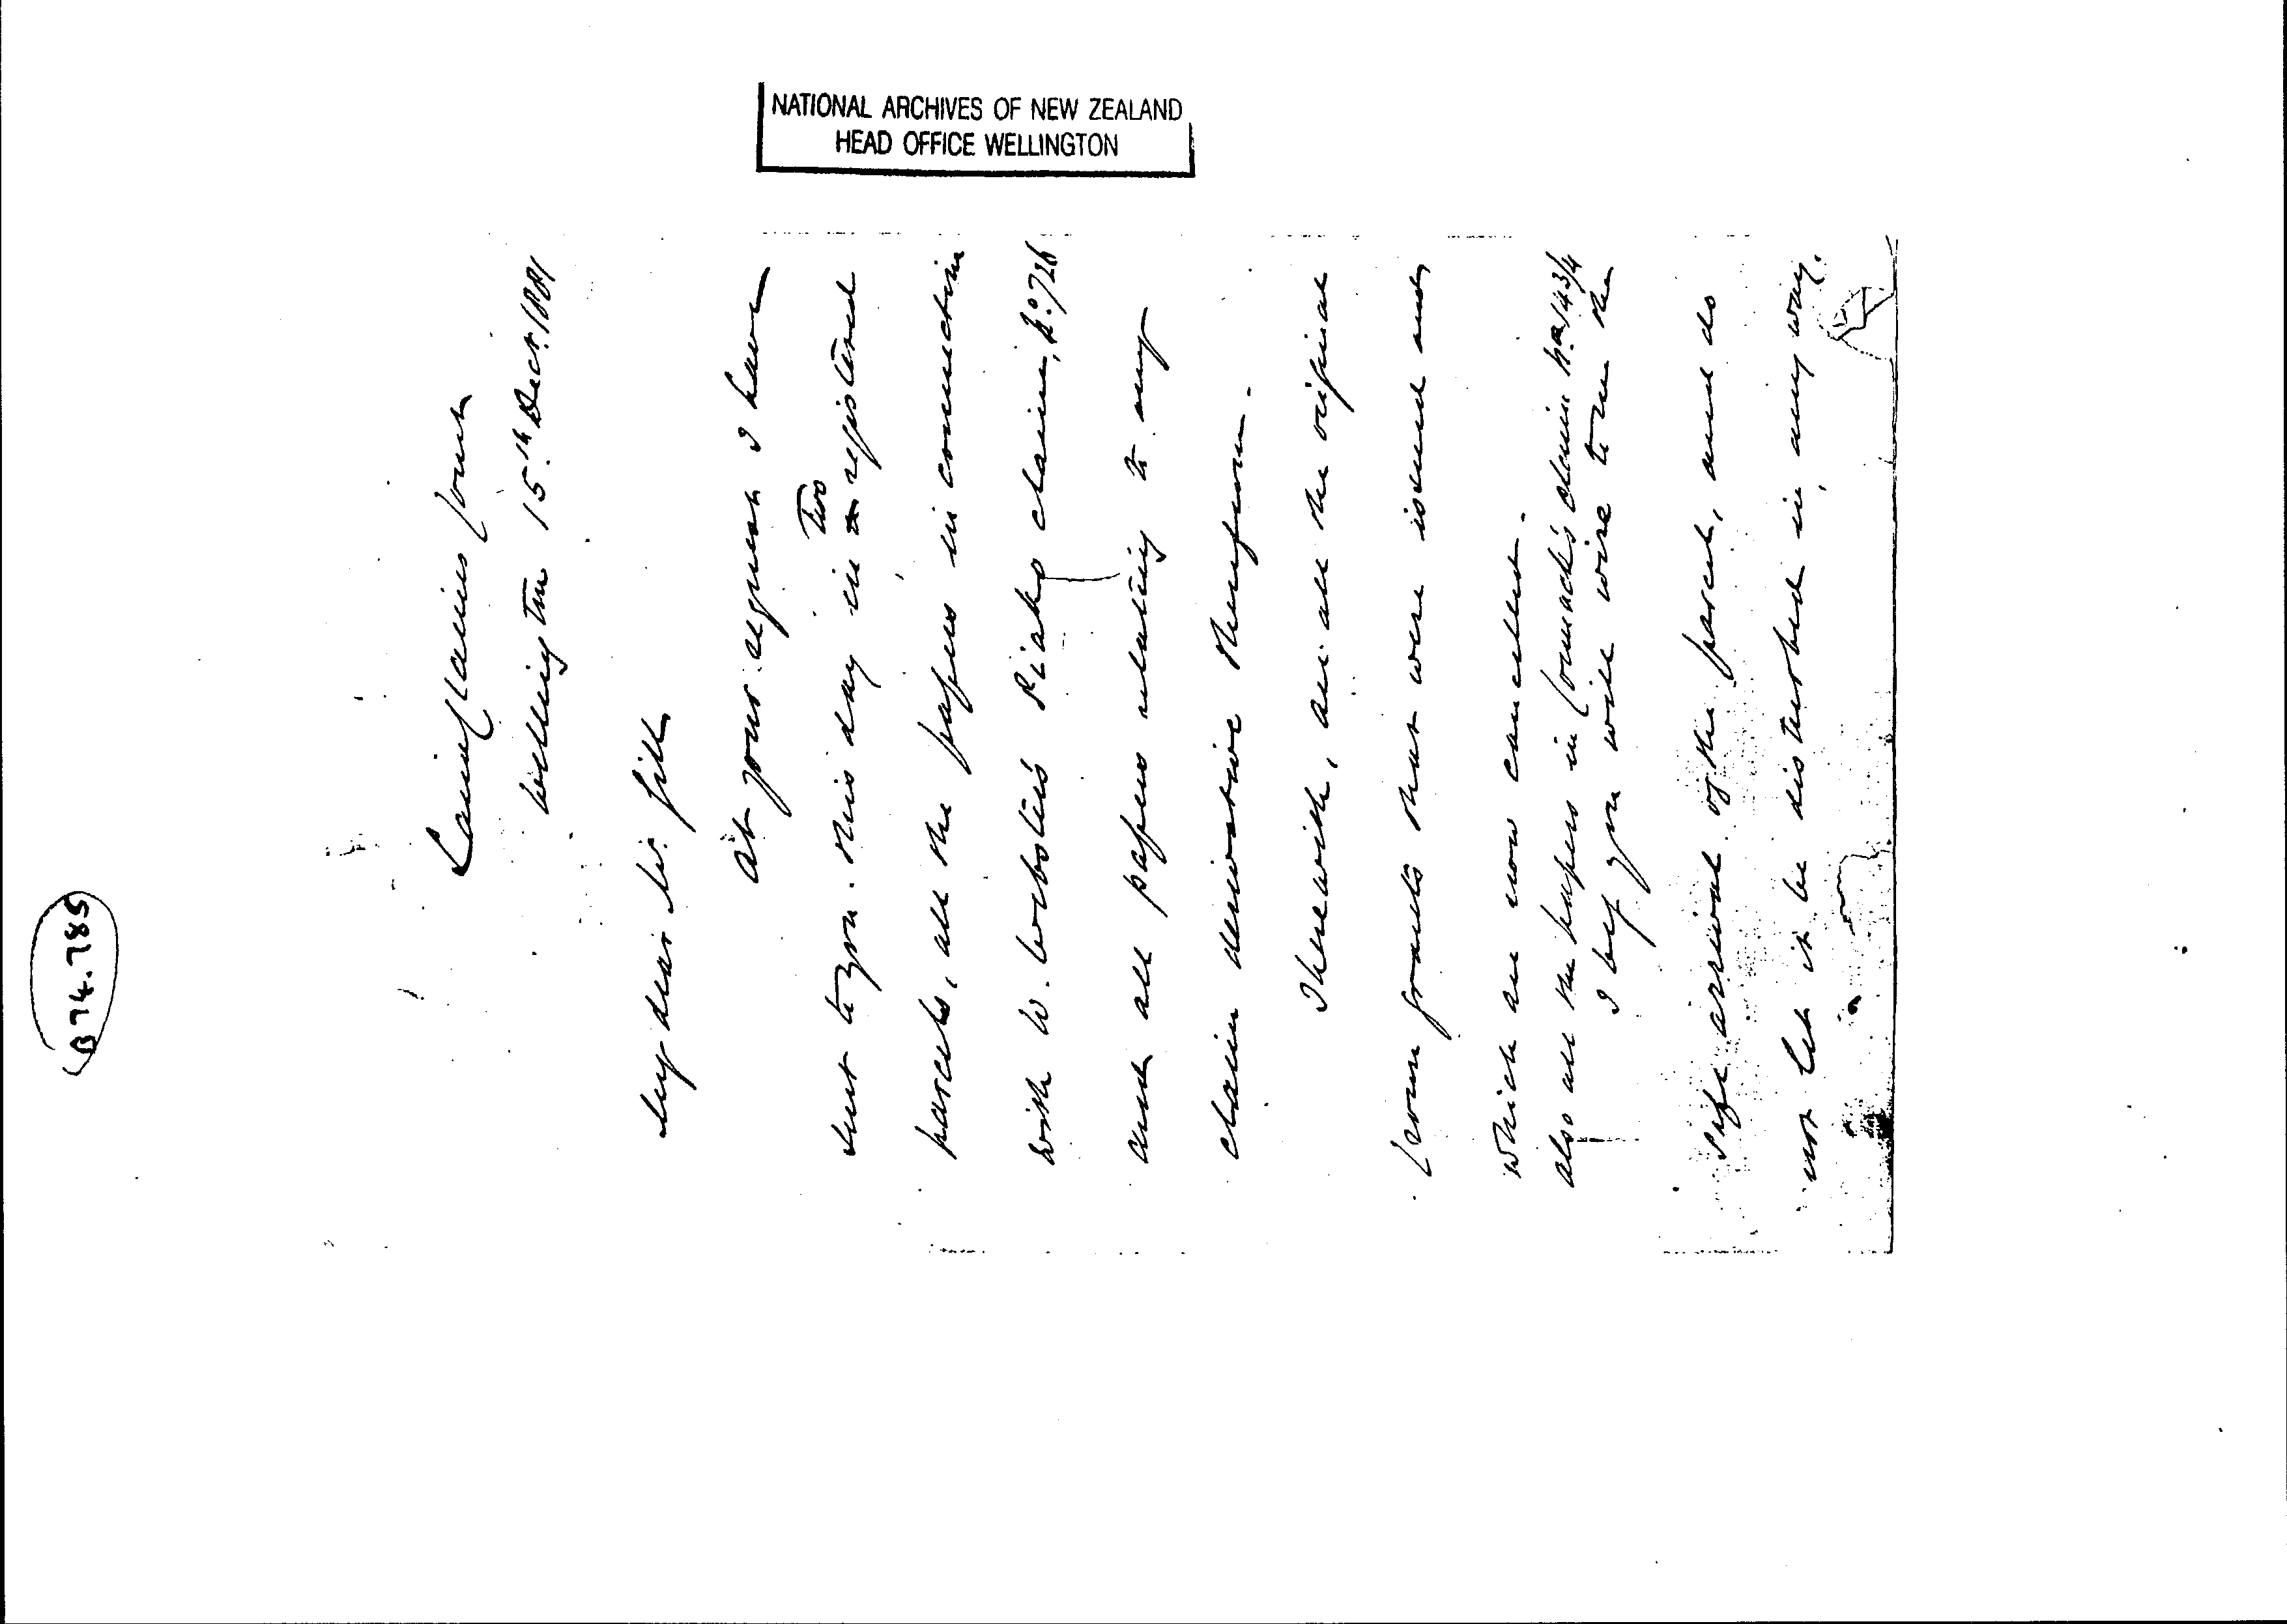 NATIONAL ARCHIVES OF NEW ZEALAND
HEAD OFFICE WELLINGTON
B 74.785
Land Claims Court
Wellington 15th Dect. 1881
My dear Mr. Gill
At your request I have
sent to you this day in two registered
parcels, all the papers in connection
with W. Webster's Piako claim, No. 726
and all papers relating to any
claim derivative therefrom.
Therewith, are all the original
Crown grants that were issued and
which are now cancelled.
also all the papers in Cormack's claim No. 143/4
I beg you will wire to me the
safe arrival of the parcel, and do
not let it be disturbed in any way.